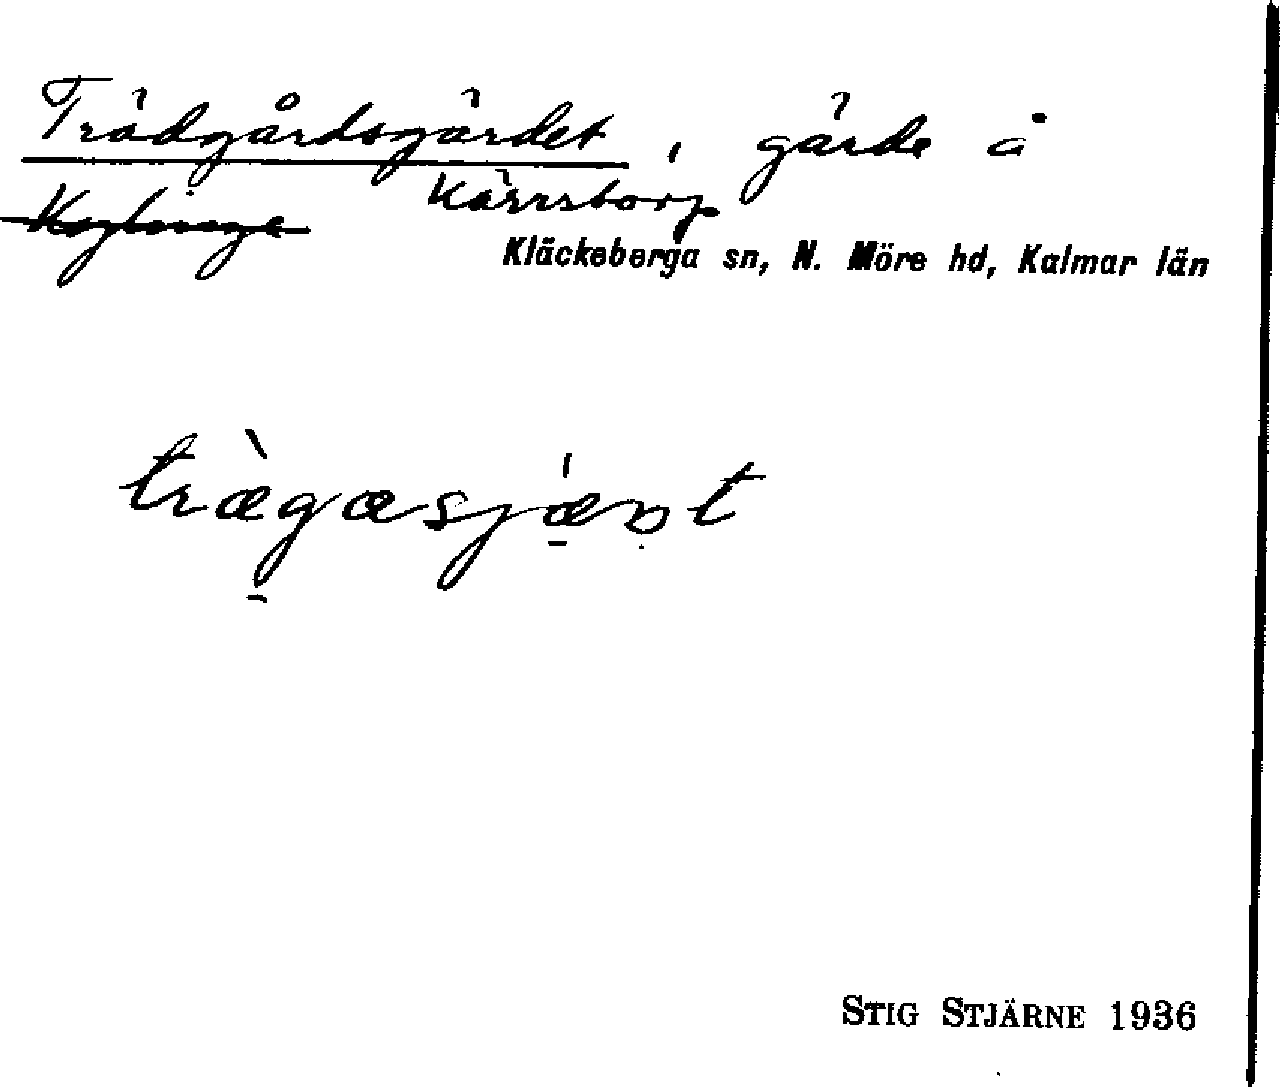 Trädgårdsgärdet, gärde å
Kärrstorp
Kläckeberga sn, N. Möre hd, Kalmar län
træ̀gæsjæ̀ṇt
STIG STJÄRNE 1936